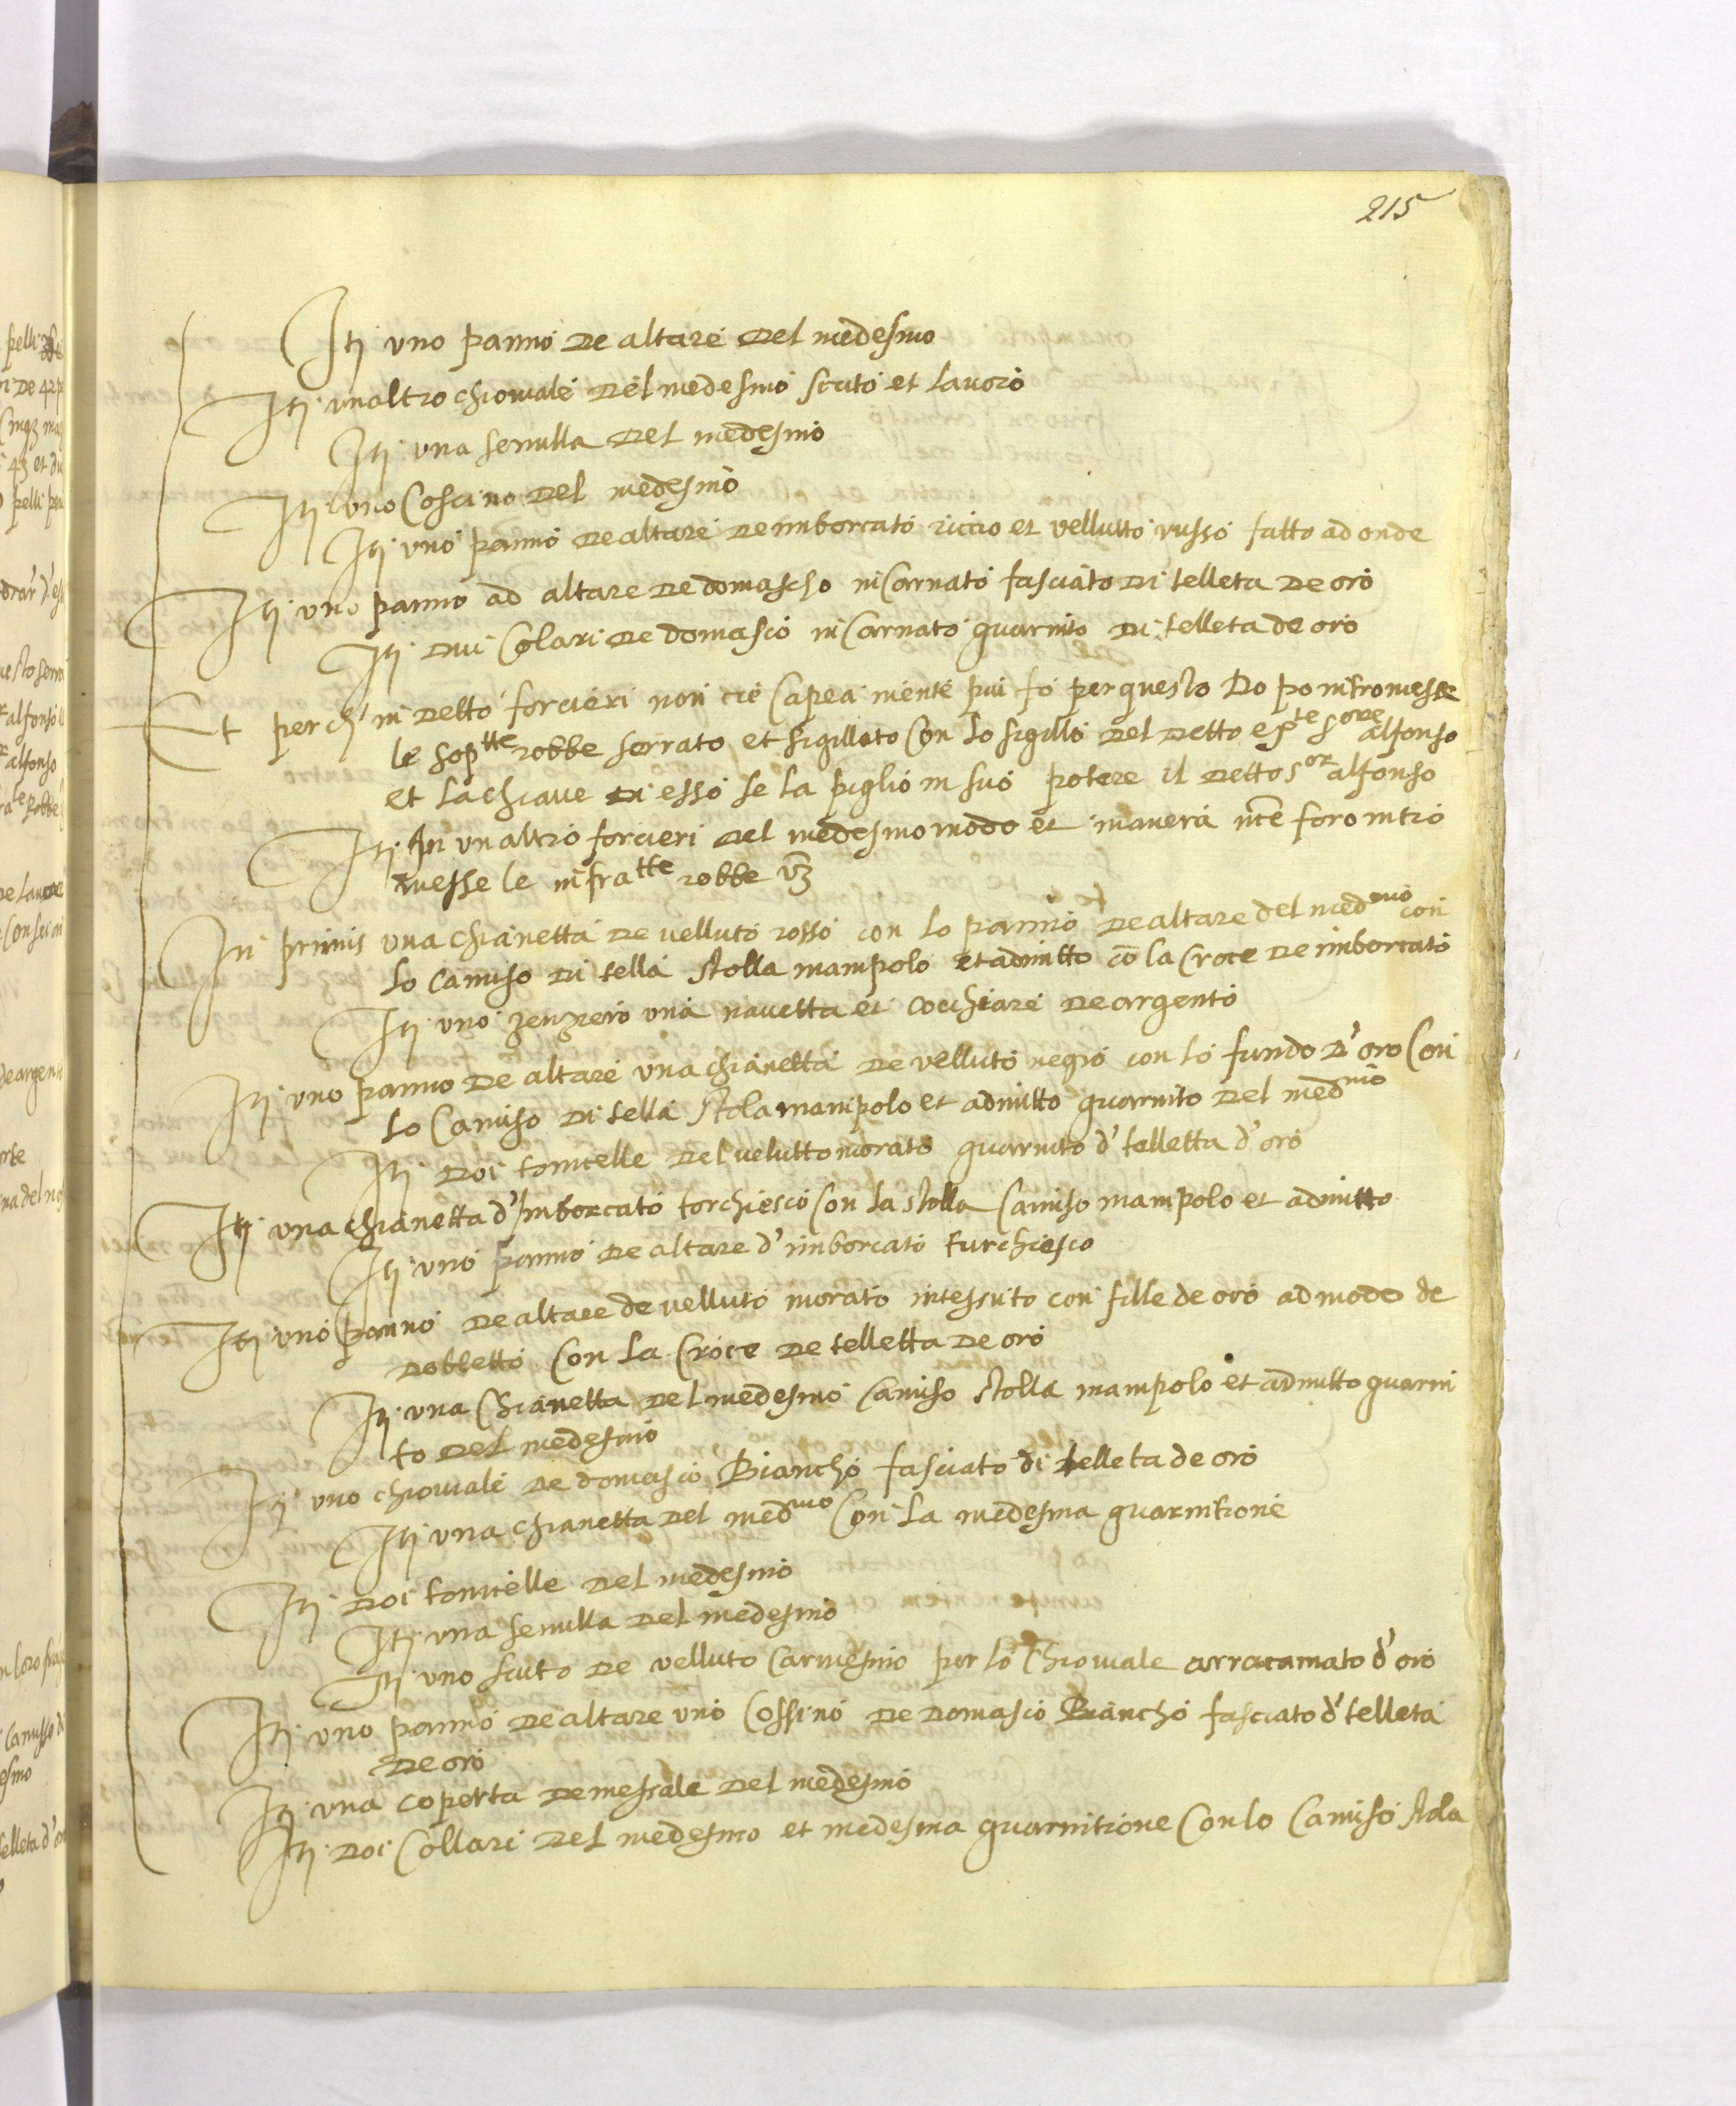 215
Itj uno panno de altare del medesmo
Itj unaltro chioviale del medesmo scuto et lavoro
Itj una semulla del medesmo
Itj uno Coscino del medesmo
Itj uno panno de altare de imborcato riccio et vellutto russo fatto ad onde
Itj uno panno ad altare de domascho inCarnato fasciato di telleta de oro
Itj dui Colari de domascio inCarnato guarnito di telleta de oro
Et perch' in detto forcieri non cie Capea niente piu fo per questo Dopo intromesse
le sop^tte robbe serrato et sigillato Con lo sigillo del detto es^te s^ore alfonso
et la chiave di esso se la piglio in suo potere il detto s^or alfonso
Itj In un altro forcieri del medesmo modo et manera nce foro intro
messe le infra^tte robbe vz
In primis una chianetta de velluto rosso con lo panno de altare del med^mo con
lo camiso di tella stolla manipolo et admitto cō la Croce de imborcato
Itj uno zenzero una navetta et cocchiare de argento
Itj uno panno de altare una chianetta de velluto negro con lo fundo d'oro Con
lo Camiso di tella stola manipolo et admitto guarnito del med^mo
Itj doi tonicelle del velutto morato guarnito d' telletta d'oro
Itj una chianetta d'Imborcato torchiesco Con la stolla Camiso manipolo et admitto
Itj uno panno de altare d'imborcato turchiesco
Itj uno panno de altare de velluto morato intessuto con fille de oro ad modo de
dobletto Con la Croce de telletta de oro
Itj una Chianetta del medesmo Camiso stolla manipolo et admitto guarni
to del medesmo
Itj uno chioviale de domascio Biancho fasciato di telleta de oro
Itj una chianetta del med^mo Con la medesma guarnitione
Itj doi tonicelle del medesmo
Itj una semulla del medesmo
Itj uno scuto de velluto Carmesino per lo Chioviale arracamato d'oro
Itj uno panno de altare uno Cossino de domascio Biancho fasciato d' telleta
de oro
Itj una coperta de messale del medesmo
Itj doi Collari del medesmo et medesma guarnitione Con lo Camiso stola